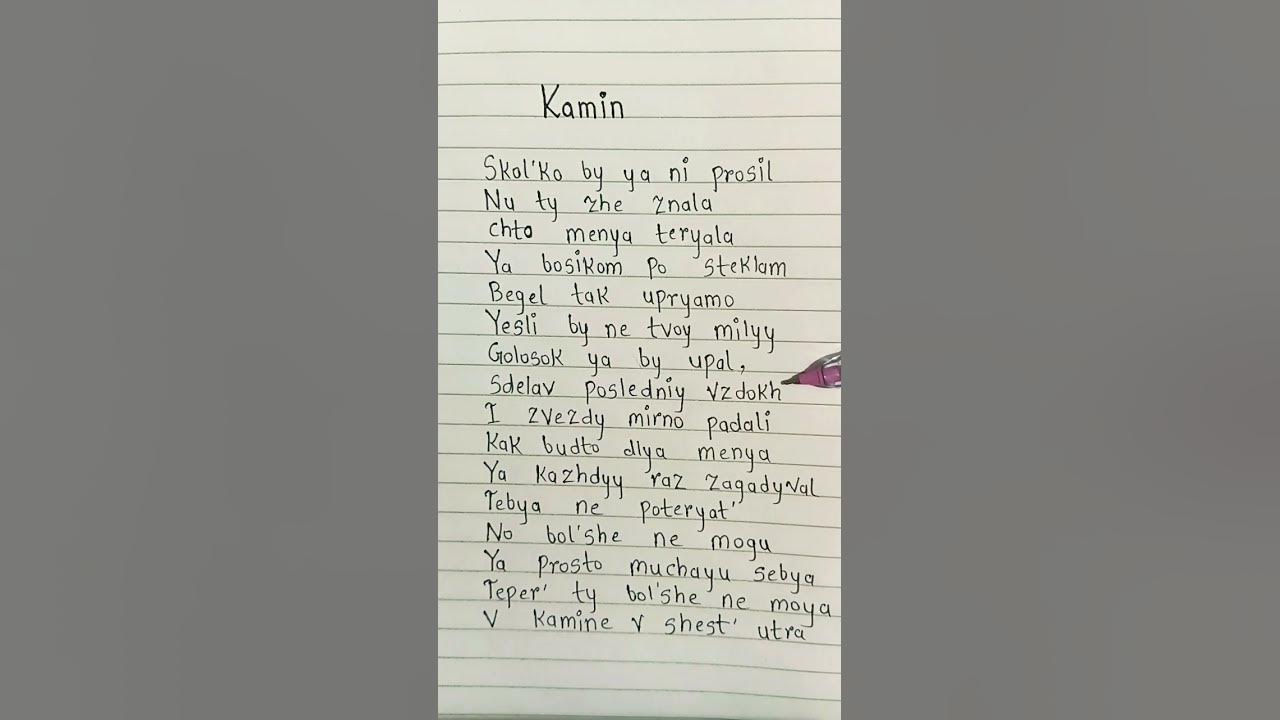 Kamin
Skol'ko by ya ni prosil
Nu ty zhe znala
chto menya teryala
Ya bosikom po steklam
Begel tak upryamo
Yesli by ne tvoy milyy
Golosok ya by upal,
Sdelav posledniy vzdokh
I zvezdy mirno padali
Kak budto dlya menya
Ya kazhdyy raz zagadyval
Tebya ne poteryat'
No bol'she ne mogu
Ya prosto muchayu sebya
Teper' ty bol'she ne moya
V kamine v shest' utra